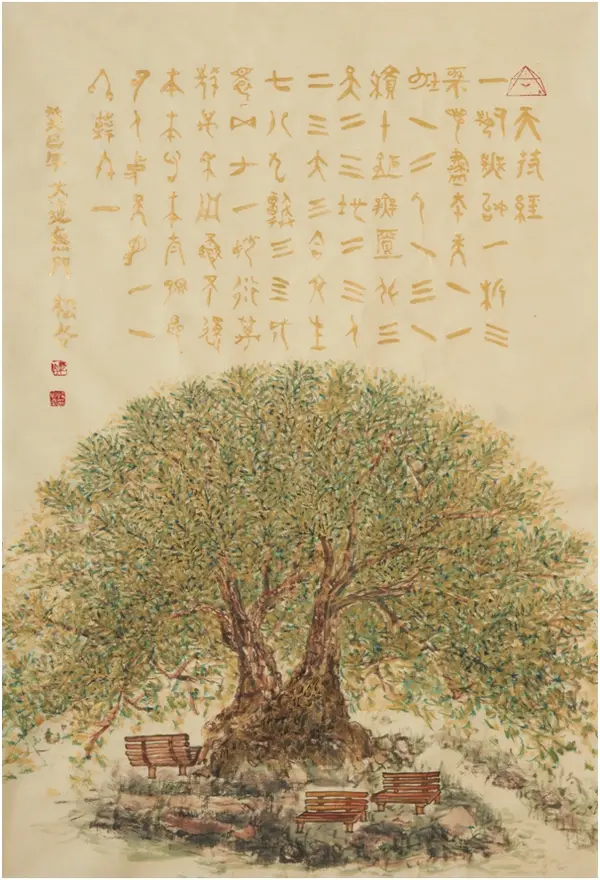 天符經
一始無始一析三
極無盡本天一一
地一二人一三一
積十鉅無匱化三
天二三地二三人
二三大三合六生
七八九運三四成
環五七一妙衍萬
往萬來用變不動
本本心本太陽昂
明人中天地一一
終無終一
癸巳年 大道無門 松